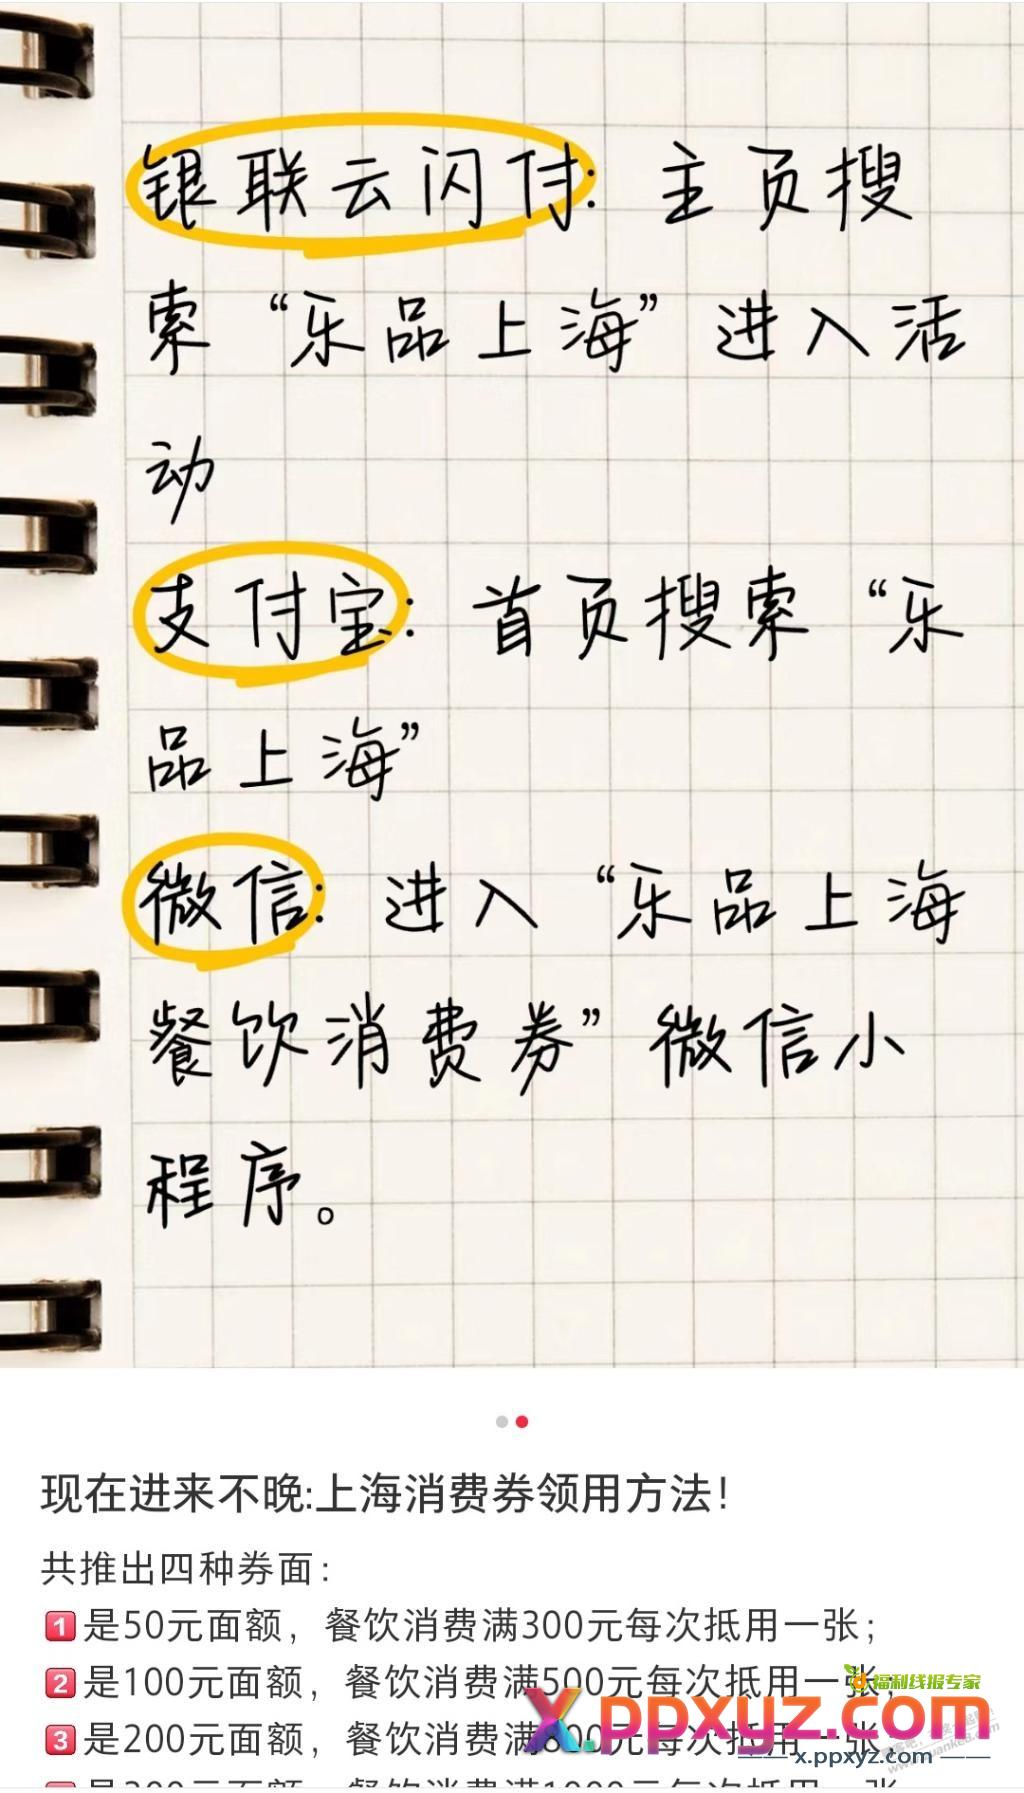 银联云闪付：主页搜
索“乐品上海”进入活
动
支付宝：首页搜索“乐
品上海”
微信：进入“乐品上海
餐饮消费券”微信小
程序。
现在进来不晚:上海消费券领用方法！
共推出四种券面：
1是50元面额，餐饮消费满300元每次抵用一张；
2是100元面额，餐饮消费满500元每次抵用一张；
福利线报专家
X.ppxyz.com
3是200元面额，餐饮消费满800元每次抵用一张
x.ppxyz.com
是300元面额，餐饮消费满1000元每次抵用一张